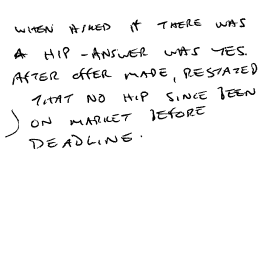 WHEN ASKED IF THERE WAS
A HIP - ANSWER WAS YES.
AFTER OFFER MADE, RESTATED
THAT NO HIP SINCE BEEN
ON MARKET BEFORE
DEADLINE.